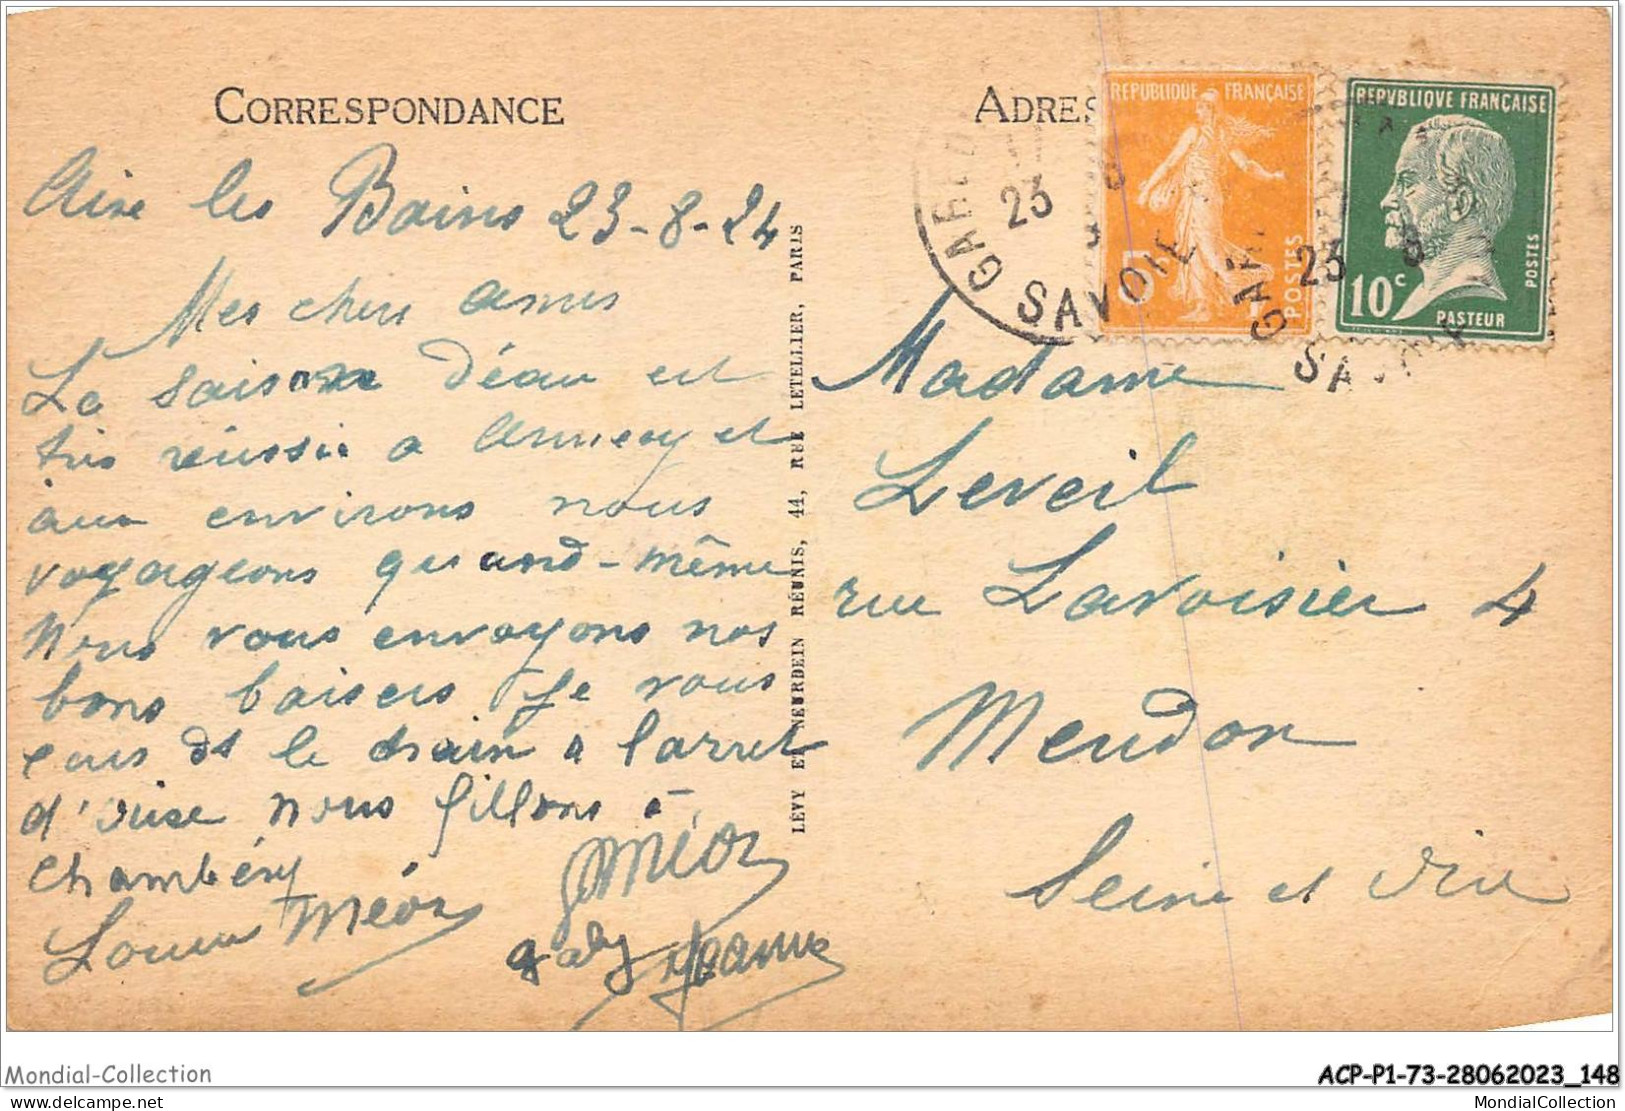 CORRESPONDANCE
Aixe les Bains 23-8-24
Mes chers amis
La saison d'éau est
très réussie a Annecy et
aux environs nous
voyageons quand-même
Nous vous envoyons nos
bons baisers je vous
le train a l'arret
nous fillons à
Chambéry
Louise Méor
Méor
gaby Jeanne
LÉVY ET NEURDEIN RÉUNIS, 44, RUE LETELLIER, PARIS
ADRES
REPUBLIQUE FRANÇAISE
POSTES
REPVBLIQVE FRANÇAISE
10c
POSTES
PASTEUR
23
SAVOIE
23 8
Madame
Leveil
rue Lavoisier 4
Meudon
Seine et Oise
Mondial-Collection
ACP-P1-73-28062023_148
delcampe.net
MondialCollection